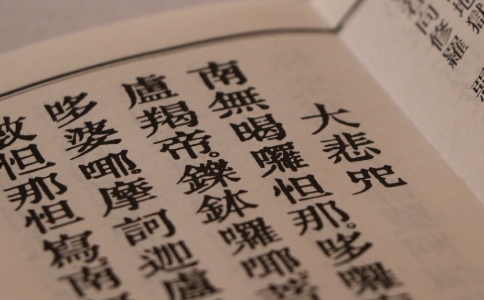 地獄
同修羅
大悲咒
南無喝囉怛那。哆囉
盧羯帝。鑠鉢囉耶
哆婆㖿。摩訶迦盧
怛那怛寫。南